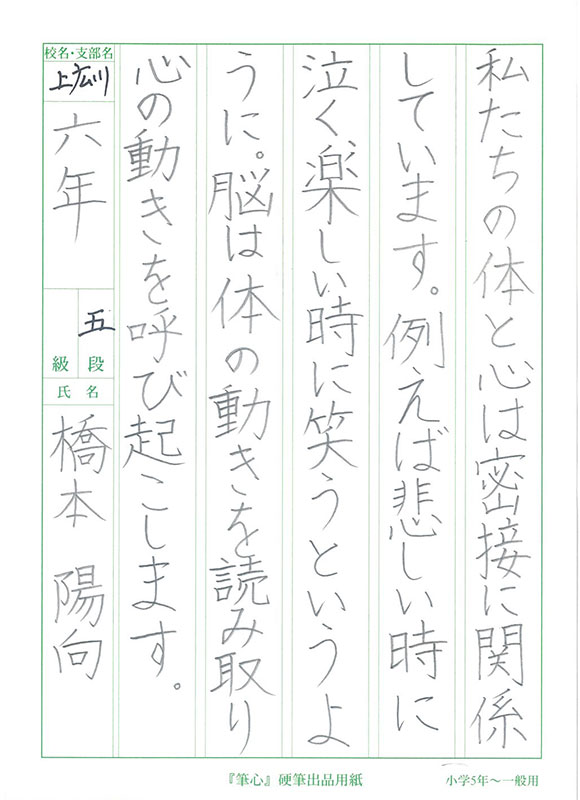 私たちの体と心は密接に関係
しています。例えば悲しい時に
泣く、楽しい時に笑うというよ
うに。脳は体の動きを読み取り
心の動きを呼び起こします。
校名・支部名
上広川
六年
五段
級
氏名
橋本 陽向
『筆心』硬筆出品用紙
小学5年～一般用